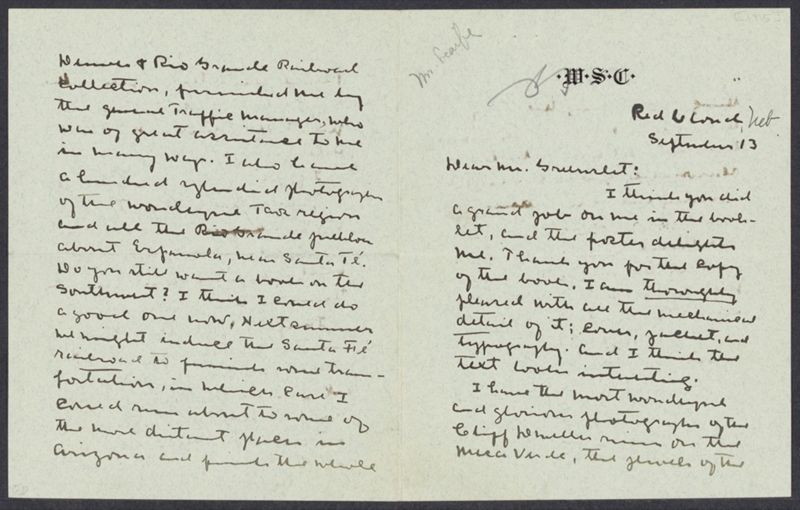 Mr. Scaife
·W·S·C·
Red Cloud, Neb
September 13
Dear Mr. Greenslet:
I think you did
a grand job on me in the book-
let, and the poster delights
me. Thank you for the copy
of the book. I am thoroughly
pleased with all the mechanical
detail of it; cover, jacket, and
typography. And I think the
text looks interesting.
I have the most wonderful
and glorious photographs of the
Cliff Dweller ruins on the
Mesa Verde, the jewels of the
Denver & Rio Grande Railroad
Collection, furnished me by
the general Traffic Manager, who
was of great assistance to me
in many ways. I also have
a hundred splendid photographs
of the wonderful Taos region
and all the Rio Grande pueblos
about Española, near Santa Fé.
Do you still want a book on the
Southwest? I think I could do
a good one now. Next summer
we might induce the Santa Fé
railroad to furnish some tran-
portation, in which case I
could run about to some of
the more distant places in
Arizona and finish the whole